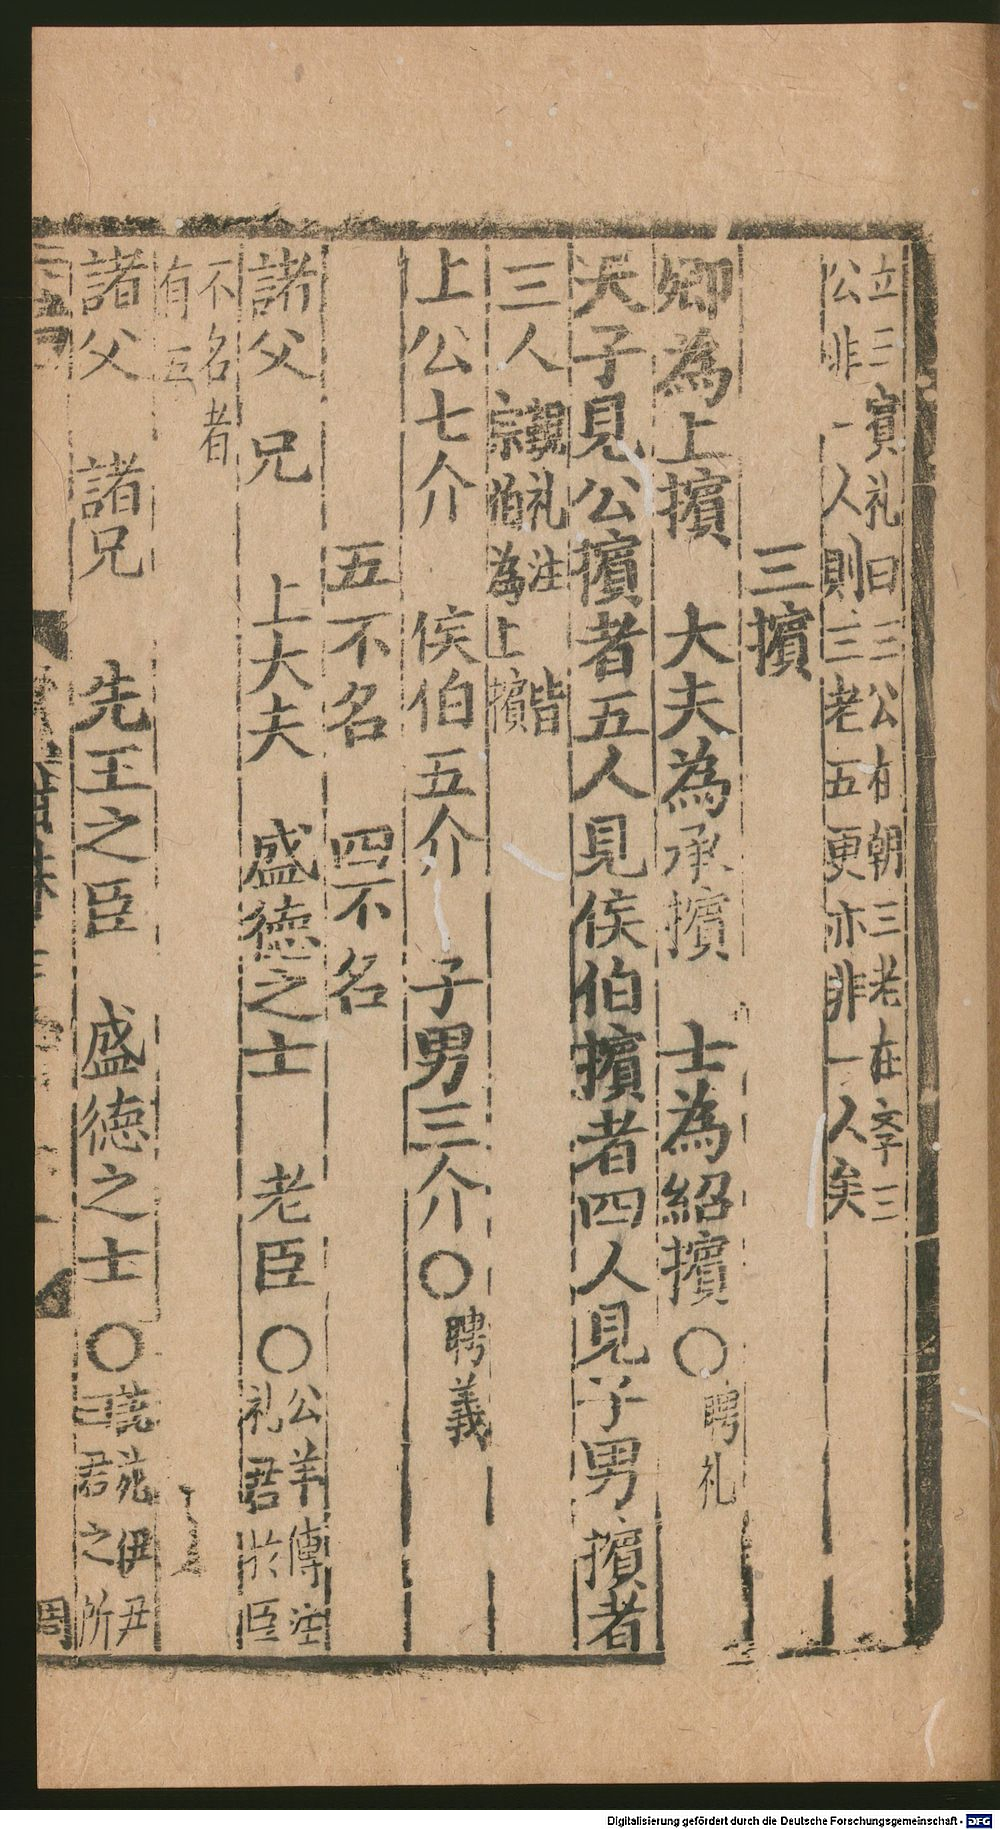 立三賔礼曰三公有朝三老在孚三
公非一人則三老五更亦非一人矣
三擯
卿為上擯 大夫為承擯 士為紹擯○聘礼
天子見公擯者五人見侯伯擯者四人見子男擯者
三人覲礼注皆
宗伯為上擯
上公七介 侯伯五介 子男三介○聘義
五不名 四不名
諸父兄 上大夫 盛德之士 老臣○公羊傳注
礼君於臣
不名者
有五
諸父 諸兄 先王之臣 盛德之士○說苑伊尹
曰君之所
Digitalisierung gefördert durch die Deutsche Forschungsgemeinschaft - DFG